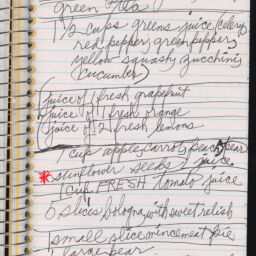 green
1/2 cups greens juice (celery,
red pepper, green pepper,
yellow squash, zucchini,
cucumber)
juice of 1 fresh grapefruit
juice of 1 fresh orange
juice of 2 fresh lemons
1 cup apple, carrot, pear
*sunflower seeds juice
1 cup FRESH tomato juice
5 slices bologna, with sweet relish
small slice mincemeat pie
1 large pear